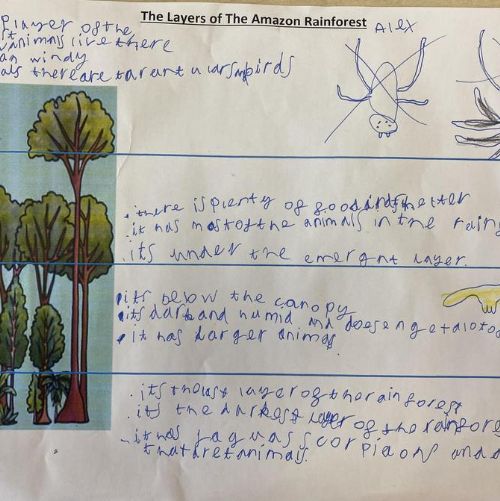 The Layers of The Amazon Rainforest
Alex
player of the
animals live there
windy
there are tarantulars birds
. there is plenty of good
. it has most of the animals in the
. its under the emergnt layer.
. its below the canopy
. its dark and humid and doesen get alot o
. it has larger animas.
. its the layer of the rain forest
. its the darkest layer of the rainfore
. it has jaguas scorpiaons and
that eat animals.